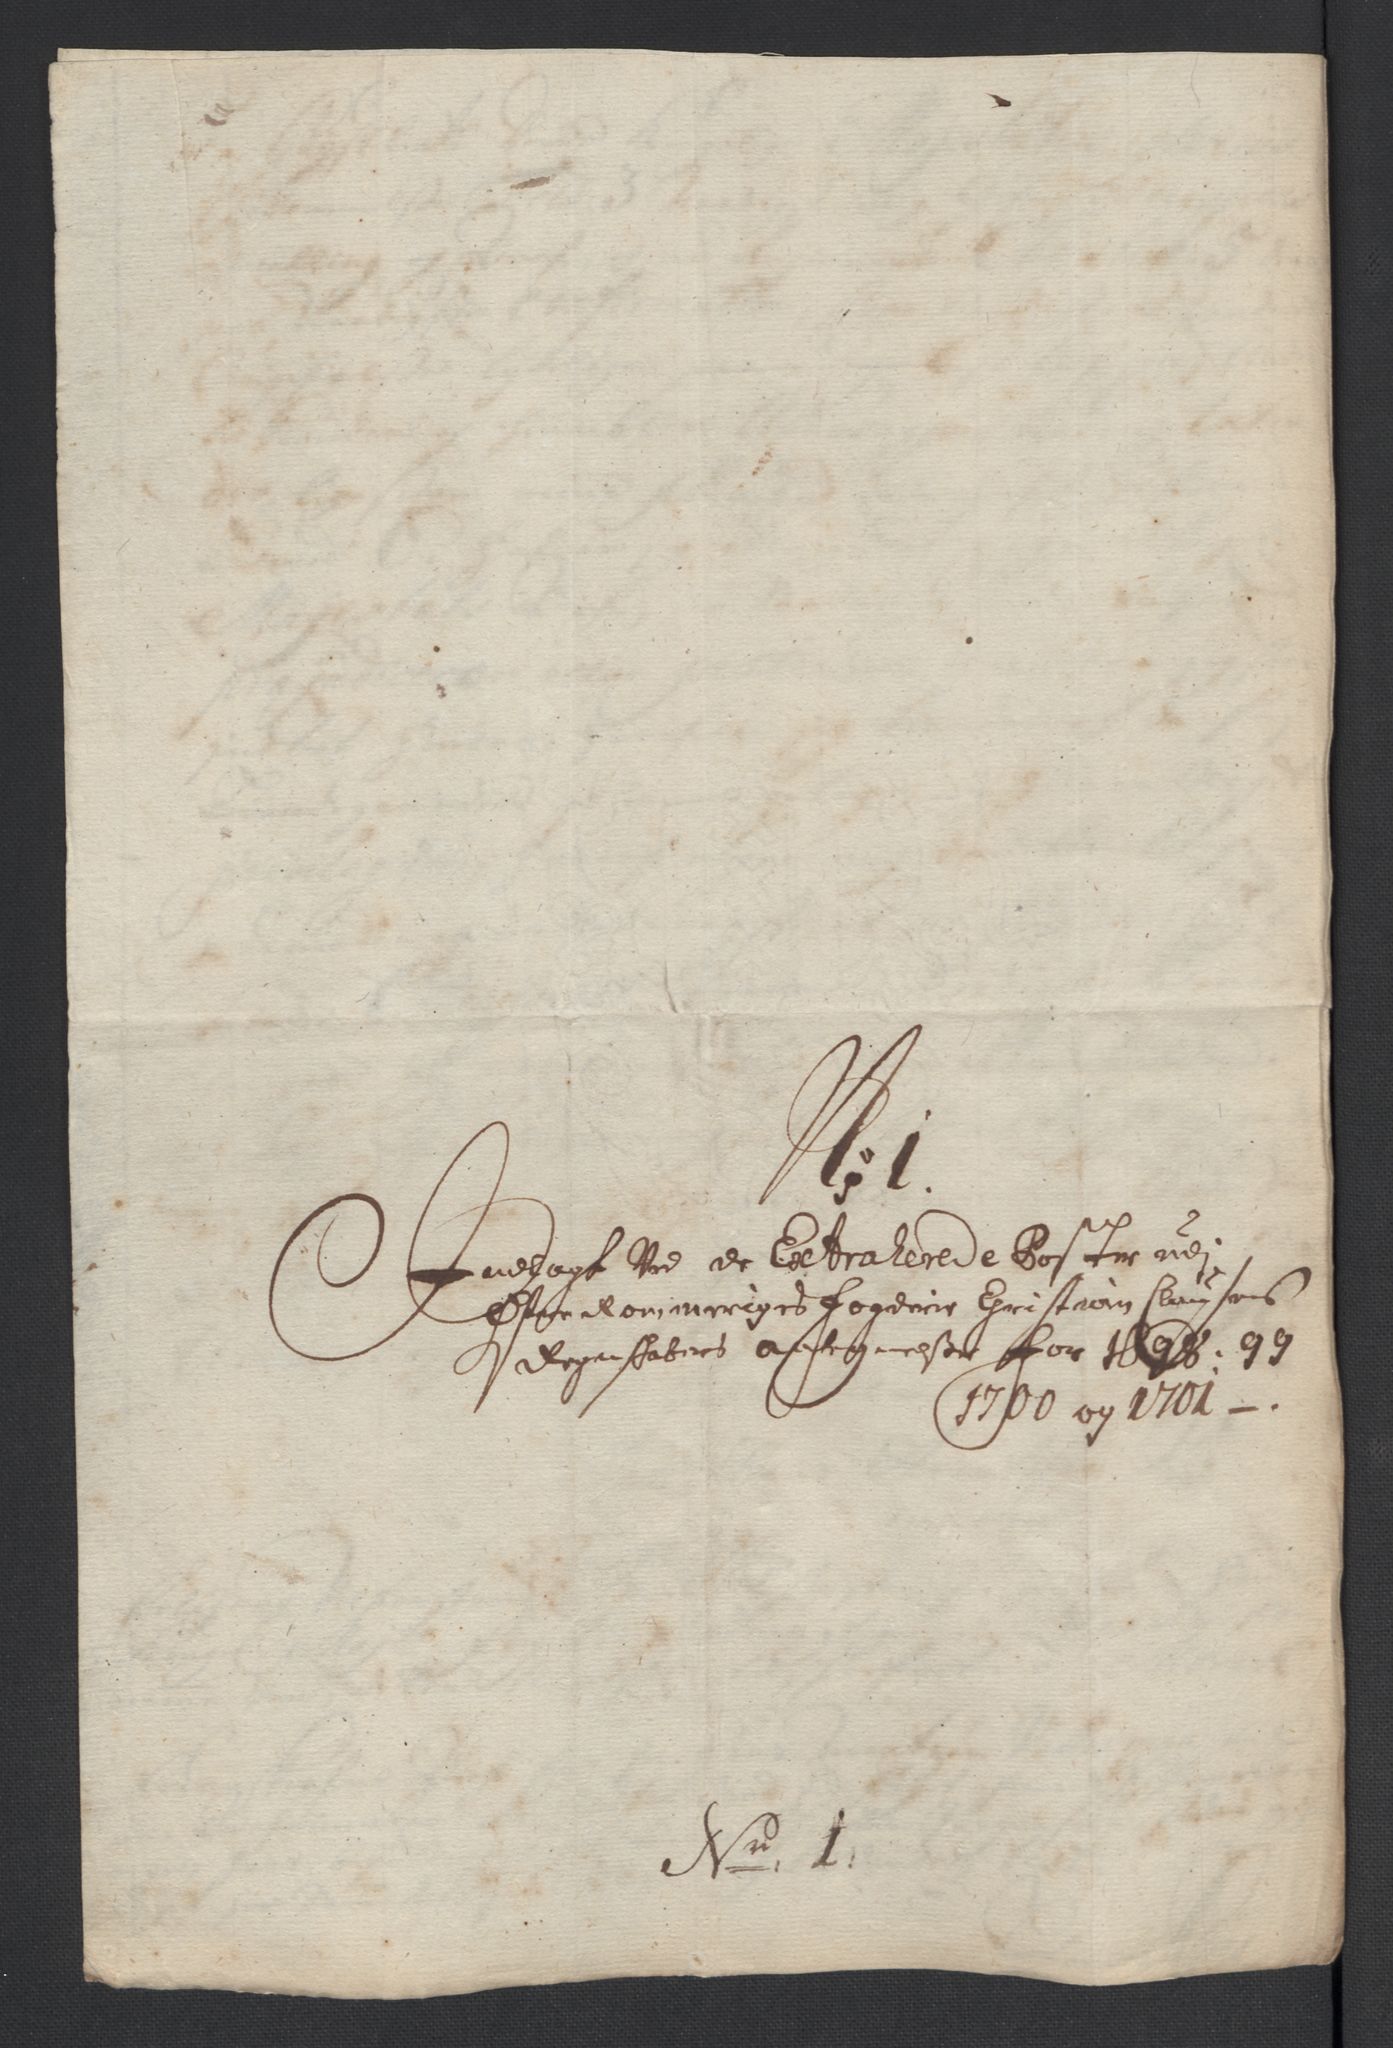 No: 1.
Indlagt Ved de Extraherede Poster udj
Øfre Rommeriges fogderie Christian Clausens
Regenskabers antegnelser for 1698: 99
1700 og 1701 –.
No. 1.